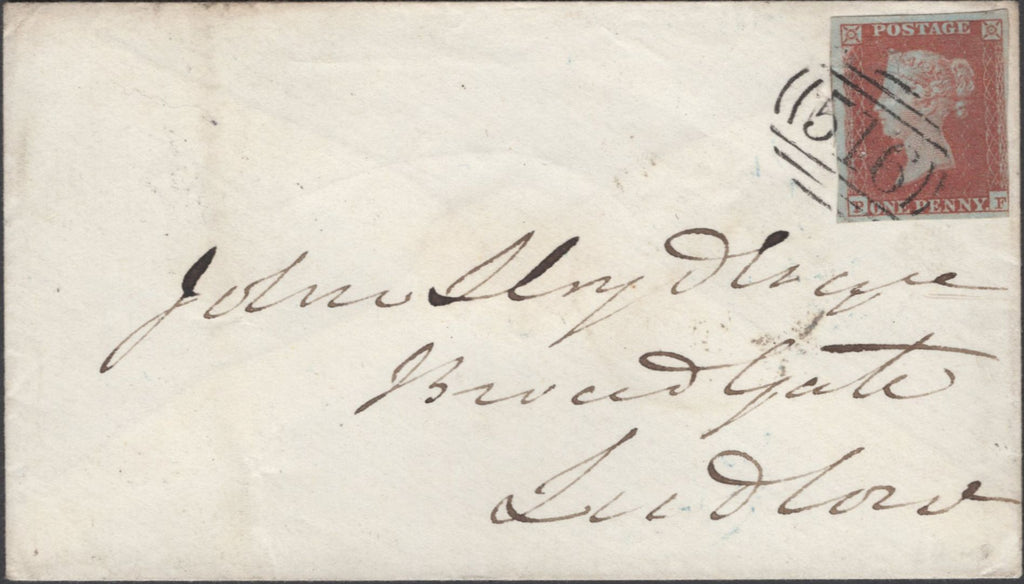 POSTAGE
516
ONE PENNY F
John Lloyd
Broad Gate
Ludlow